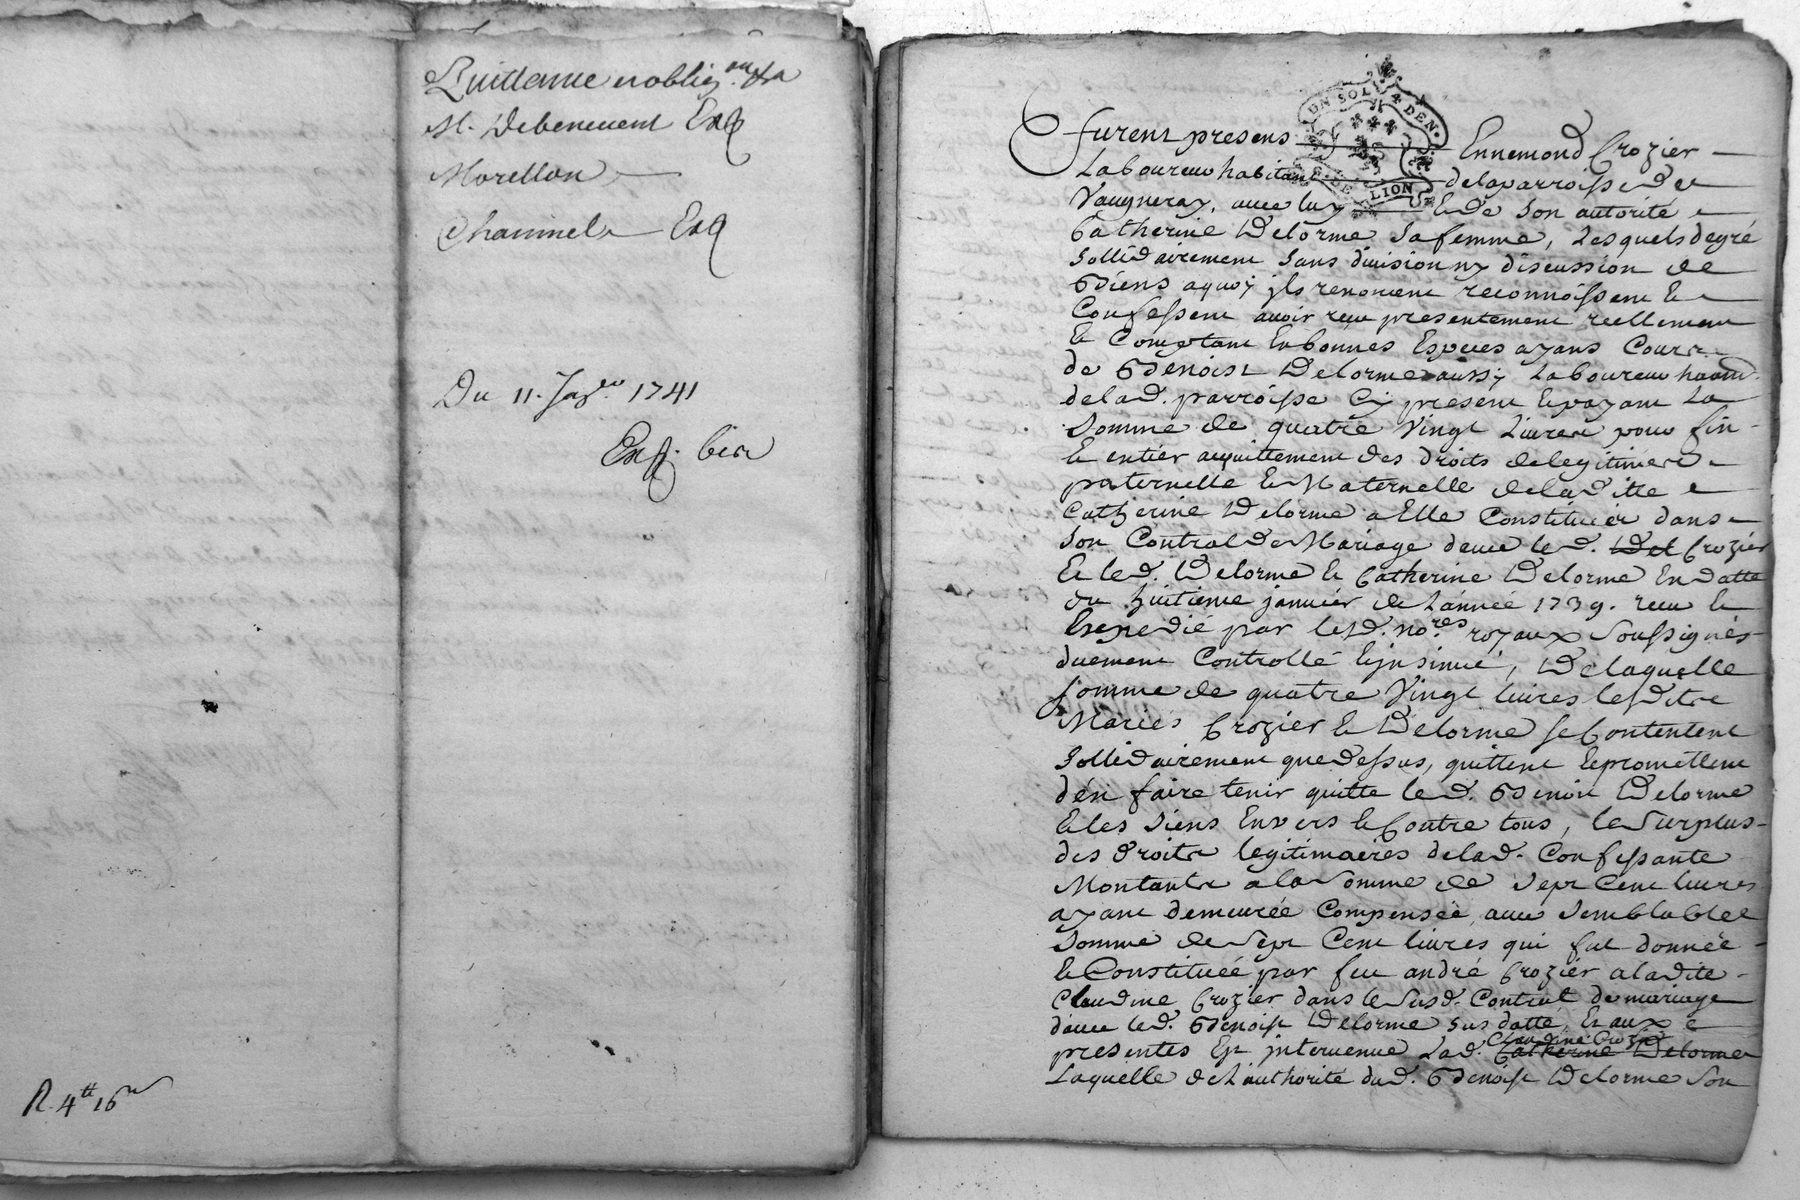 Quittance et oblig.on de
M. Debenevent Exp
Morellon
Chaminel Exp
Du 11. Jan.er 1741
Exp. bien
R. 4tt 16s
UN SOL 4 DEN.
G. DE LION
furent presens Ennemond Crozier
Laboureur habitant delaparroisse de
Vaugneray, avec luy & de son autorité
Catherine Delorme sa femme, Lesquels degré
sollidairement sans division ny discussion de
Biens aquoy ils renoncent reconnoissent &
Confessent avoir reçu presentement reellement
& Comptant En bonnes Especes ayans Cours
de Benoist Delorme aussy Laboureur habitt.
delad. parroisse Cy present & payant La
somme de quatre Vingt Livres pour fin
& entier acquittement des droits de legitime
paternelle & Maternelle deladitte
Catherine Delorme a Elle Constituée dans
son Contrat de Mariage d'avec led. Del Crozier
& led. Delorme & Catherine Delorme En datte
du huitieme janvier de L'année 1739. recu &
Expedié par lesd. no.res royaux soussignés
duement Controllé & insinué, De laquelle
somme de quatre Vingt livres lesdits
Mariés Crozier & Delorme se Contentent
sollidairement que dessus, quittent & promettent
d'en faire tenir quitte led. Benoist Delorme
& les siens Envers & Contre tous, le surplus
des droits legitimaires delad. Confessante
Montants a la somme de sept Cent livres
ayant demeurée Compensée avec semblable
somme de sept Cent livres qui fut donnée
& Constituée par feu andré Crozier a ladite
Claudine Crozier dans le susd. Contrat de mariage
d'avec led. Benoist Delorme sus datté, Et aux
presentes Est intervenue Lad. Catherine Delorme Claudine Crozier
Laquelle de L'authorité dud. Benoist Delorme son